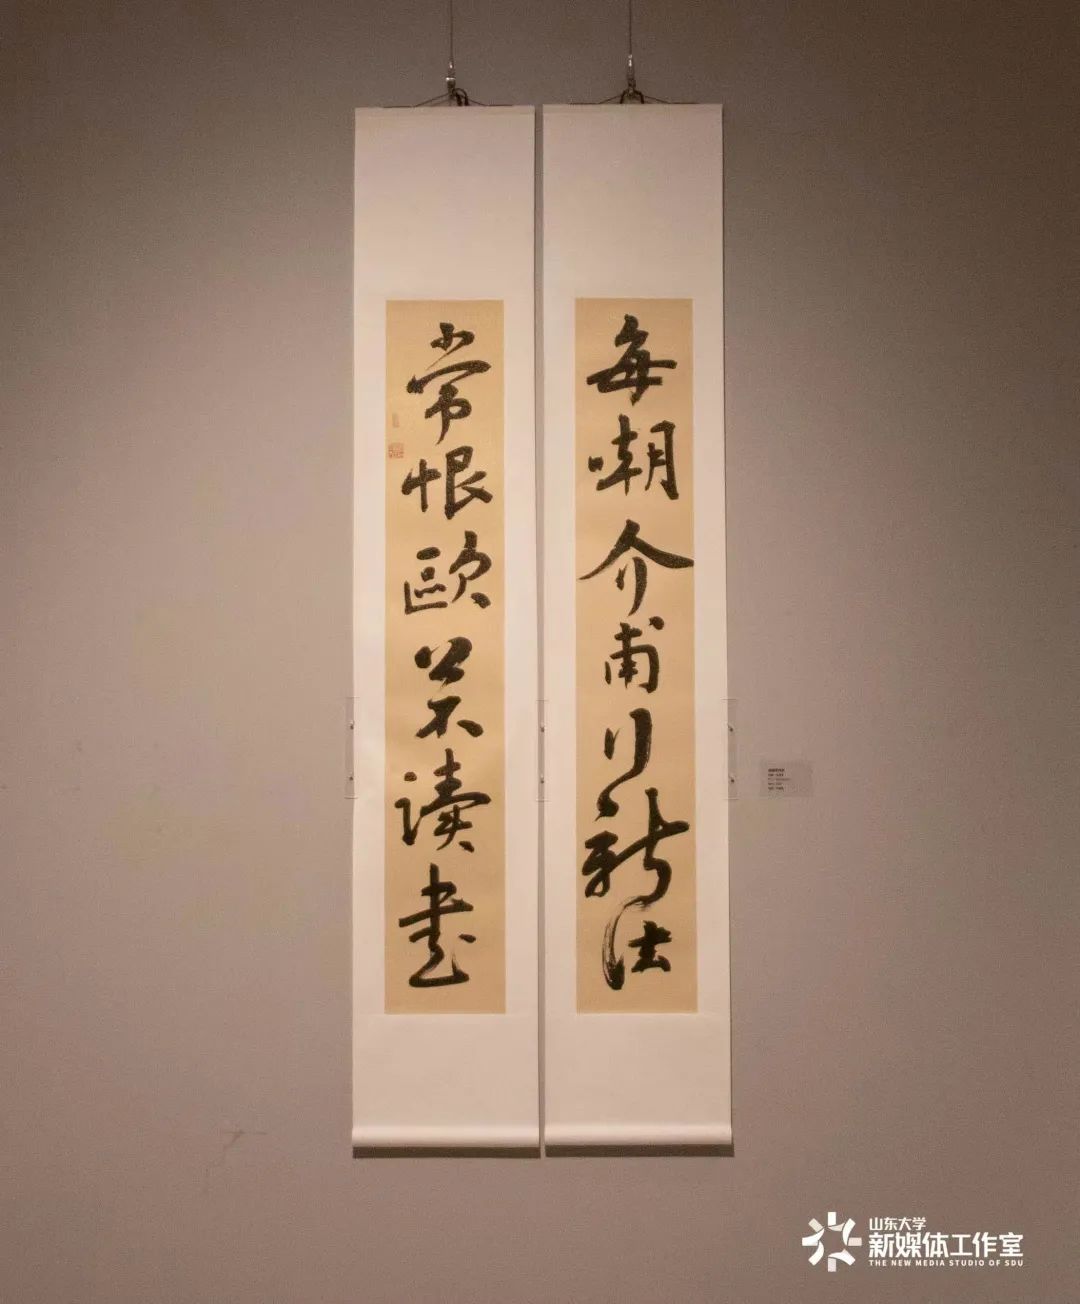 每嘲介甫行新法
常恨歐公不讀書
山东大学
新媒体工作室
THE NEW MEDIA STUDIO OF SDU